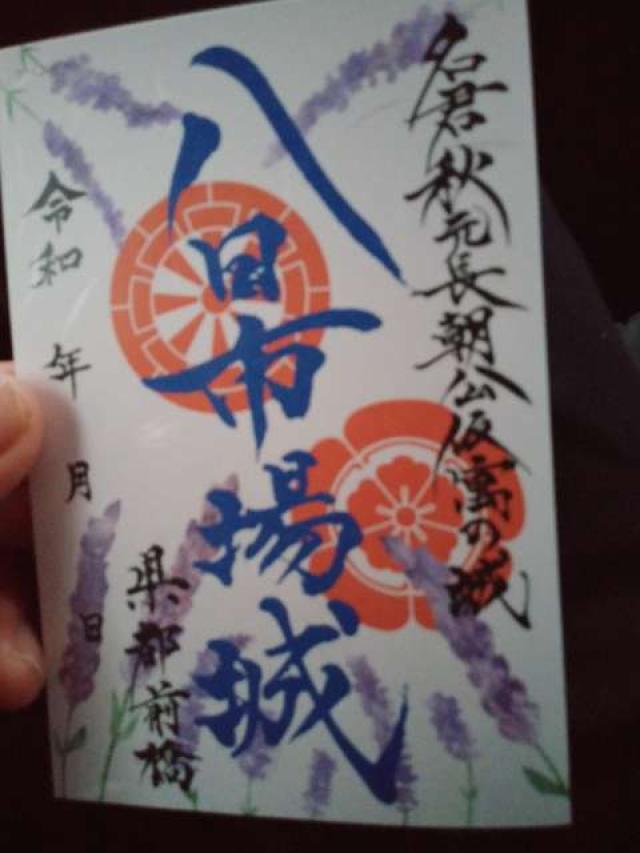 名君秋元長朝公仮寓の城
八日市場城
県都前橋
令和 年 月 日